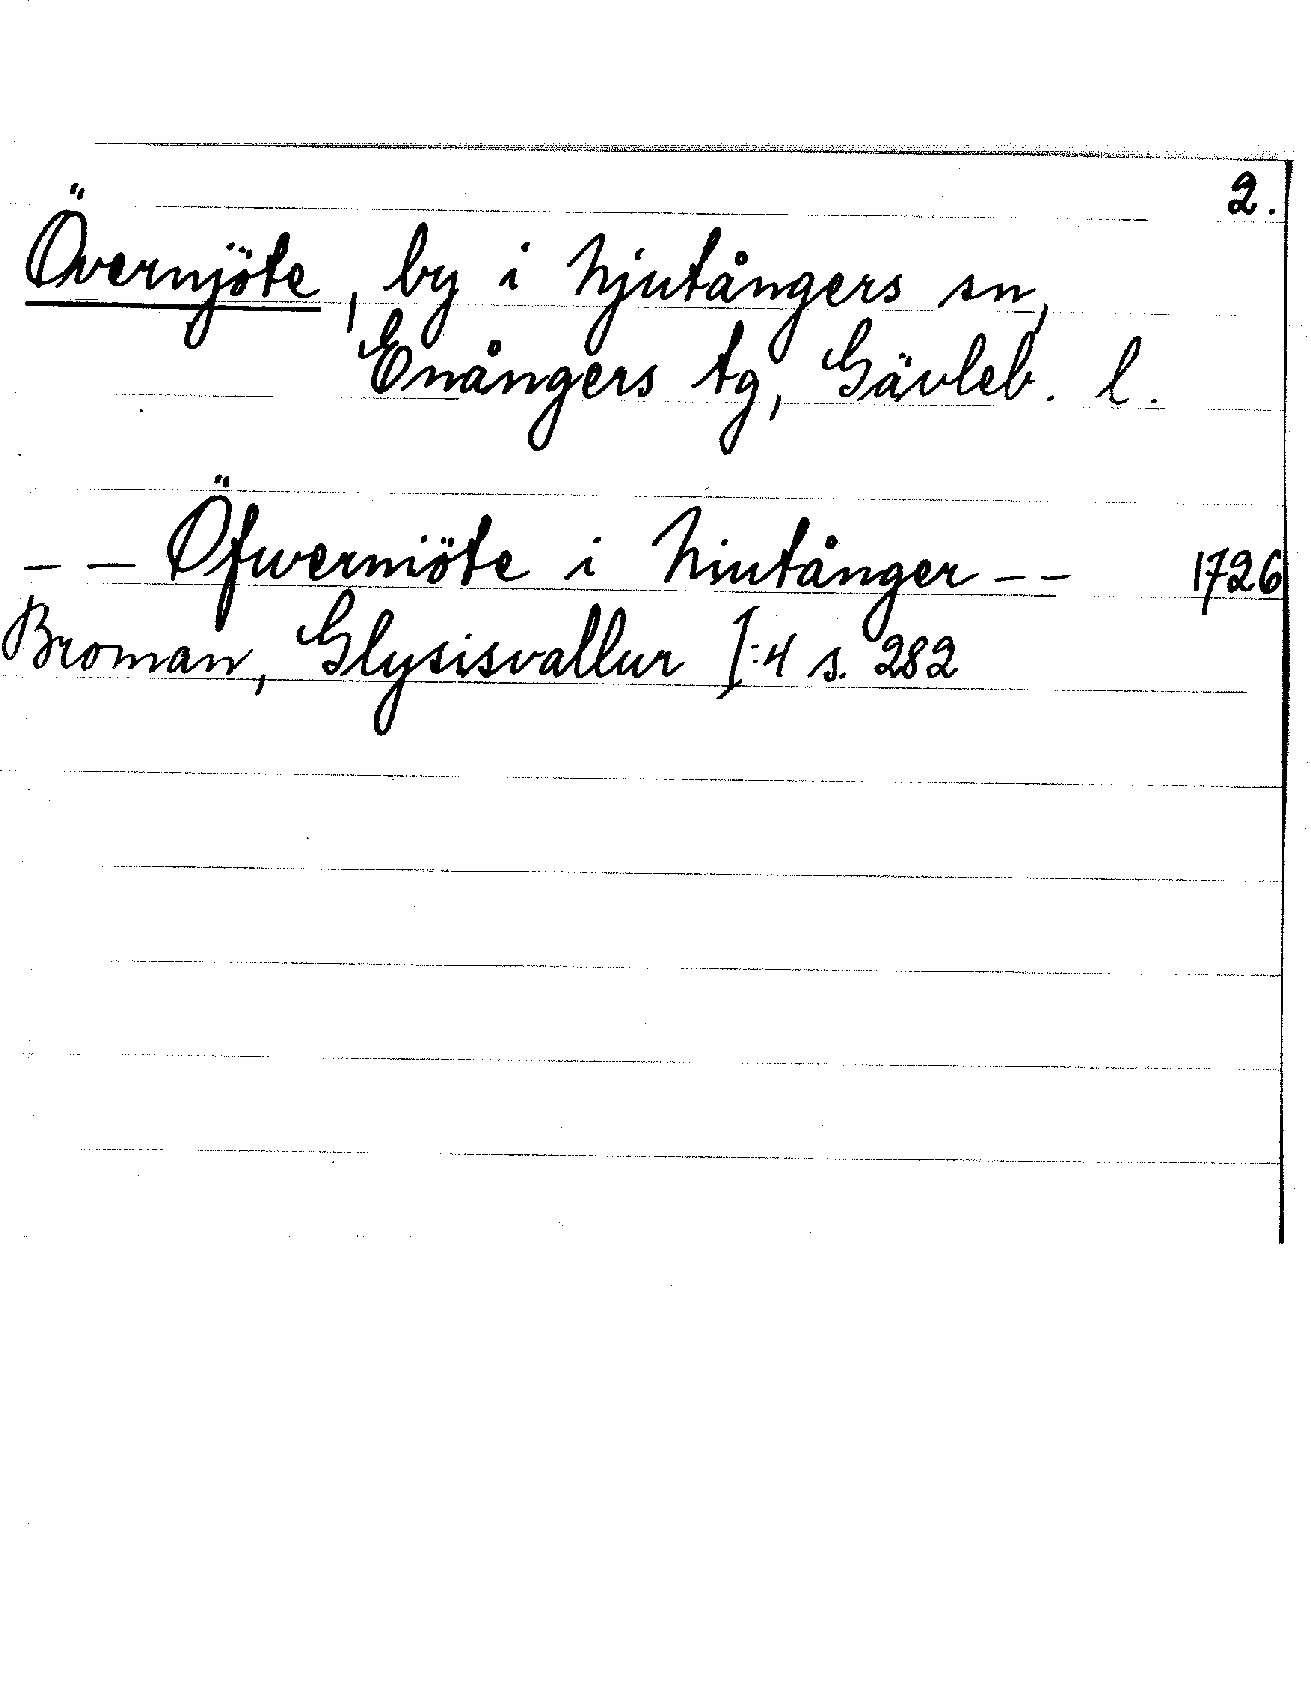 2.
Övernjöte, by i Njutångers sn,
Enångers tg, Gävleb. l.
-- Öfwerniöte i Niutånger -- 1726
Broman, Glysisvallur I:4 s. 282